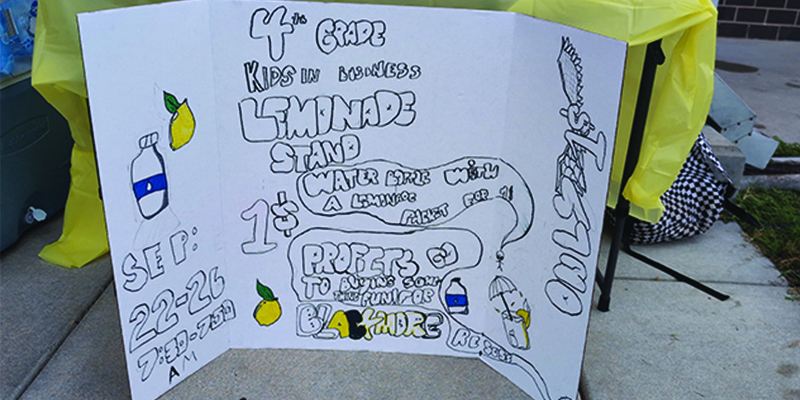 4th GRADE
KIDS IN BUSINESS
LEMONADE
STAND
1$
WATER BOTTLE WITH
A LEMONADE
PACKET FOR 1$
PROFITS GO
TO BUYING SOME
THING FUN! FOR
BLACKMORE
RECESS
SEP:
22-26
7:30-7:50
AM
ONLY 1$